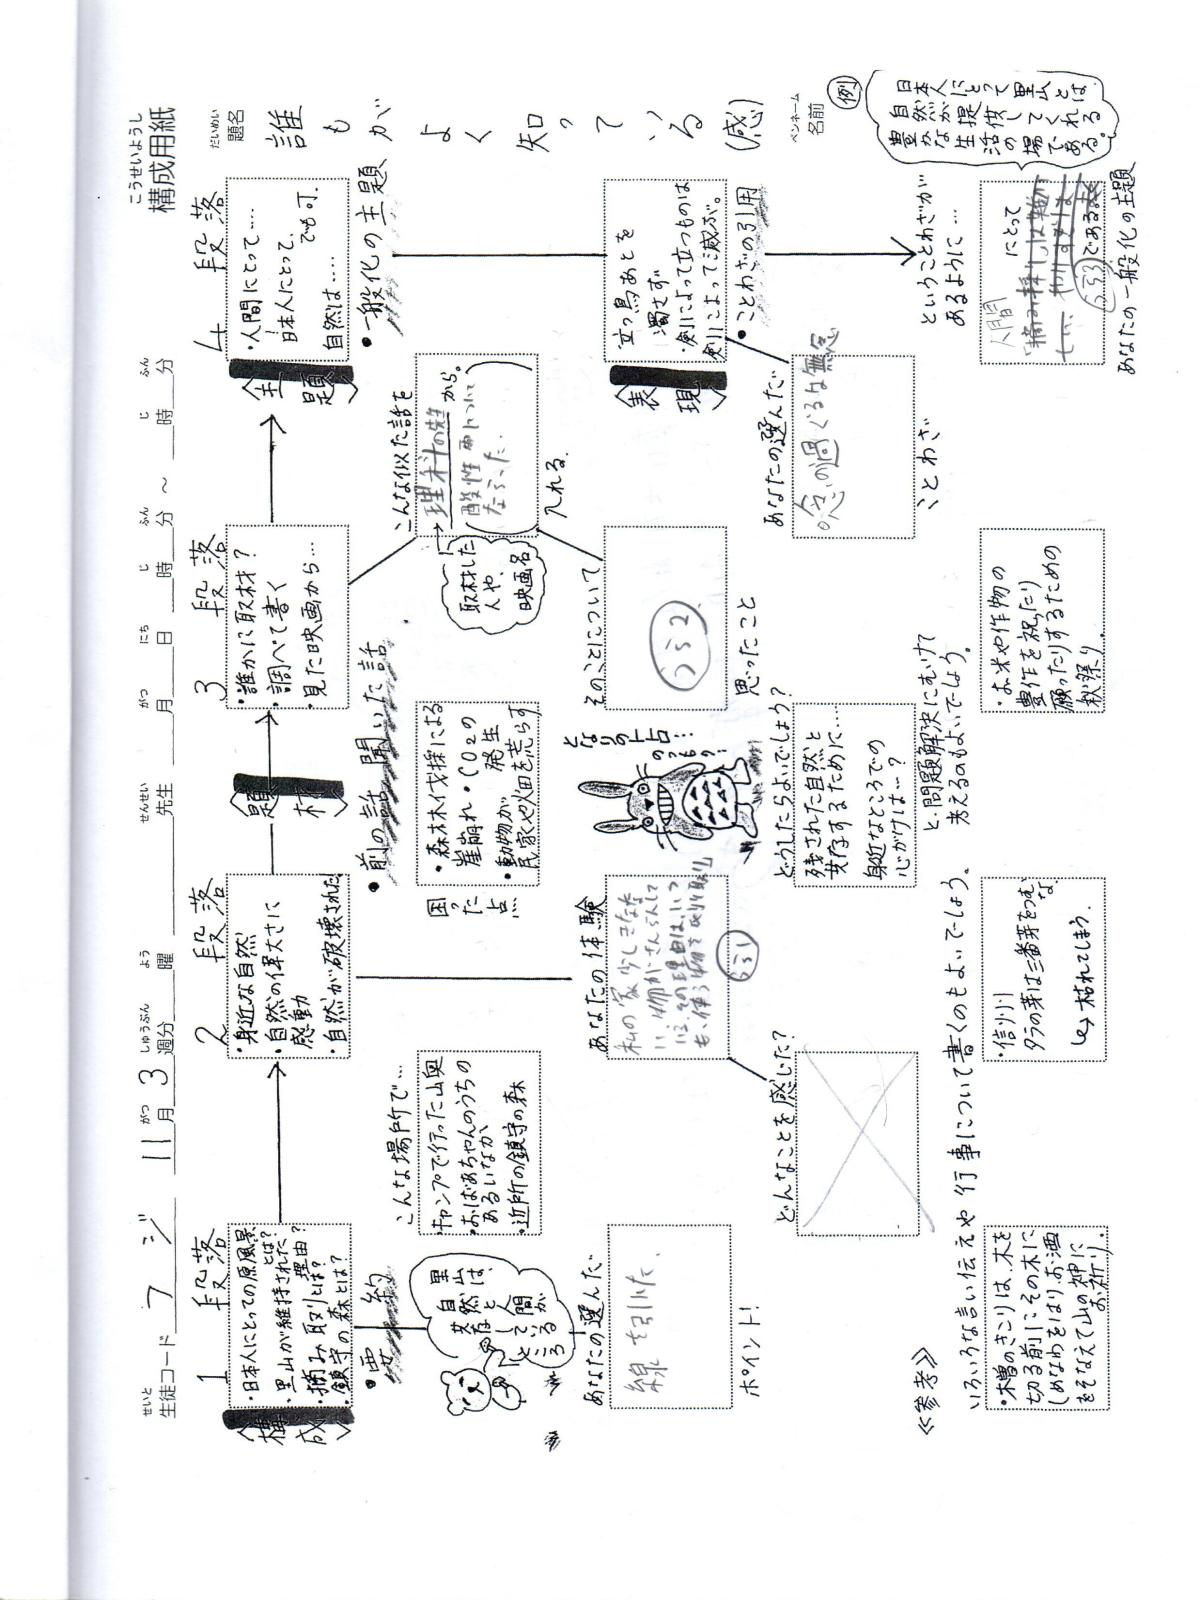 こうせいようし
構成用紙
せいと
生徒コード フジ
11 がつ 月 3 しゅうぶん 週分 よう 曜 せんせい 先生
がつ 月 にち 日 じ 時 ふん 分 ～ じ 時 ふん 分
だいめい
題名
誰もがよく知っている(感)
ペンネーム
名前
1段落
〈構成〉
・日本人にとっての原風景とは?
・里山が維持された理由?
・摘み取りとは?
・鎮守の森とは?
・要約
里山は、
自然と人間が
共存している
ところ
あなたの選んだ
線を引いた、
ポイント!
2段落
・身近な自然
・自然の偉大さに
感動
・自然が破壊された
こんな場所で…
・キャンプで行った山奥
・おばあちゃんのうちの
あるいなか
・近所の鎮守の森
あなたの体験
私の家
うら1
どんなことを感じた?
〈題材〉
・前の話 聞いた話
困った点
・森林伐採による
崖崩れ・CO₂の
発生
・動物が
民家や畑を荒らす
となりの土占
のつもり…
どうしたらよいでしょう?
残された自然と
共存するために……
身近なところでの
心がけは…?
と、問題解決にむけて
考えるのもよいでしょう。
3段落
・誰かに取材?
・調べて書く
・見た映画から…
こんな似た話を
理科の先生から。
酸性雨について
ならった。
入れる。
取材した
人や、
映画名
そのことについて
うら2
思ったこと
4段落
〈主題〉
・人間にとって……
日本人にとって、
でも可.
自然は……
・一般化の主題
〈表現〉
立つ鳥あとを
濁さず
・剣によって立つものは
剣によって滅ぶ。
・ことわざの引用
あなたの選んだ
ことわざ
ということわざが
あるように…
人間にとって
うら3
である
あなたの一般化の主題
例
日本人にとって里山とは
自然が提供してくれる
豊かな生活の場である。
≪参考≫
いろいろな言い伝えや行事について書くのもよいでしょう。
・木曽のきこりは、木を
切る前にその木に
しめなわをはり、お酒
をそなえて山の神に
お祈り。
・信州
タラの芽は三番芽をつむな。
↳枯れてしまう。
・お米や作物の
豊作を祝ったり
願ったりするための
秋祭り。